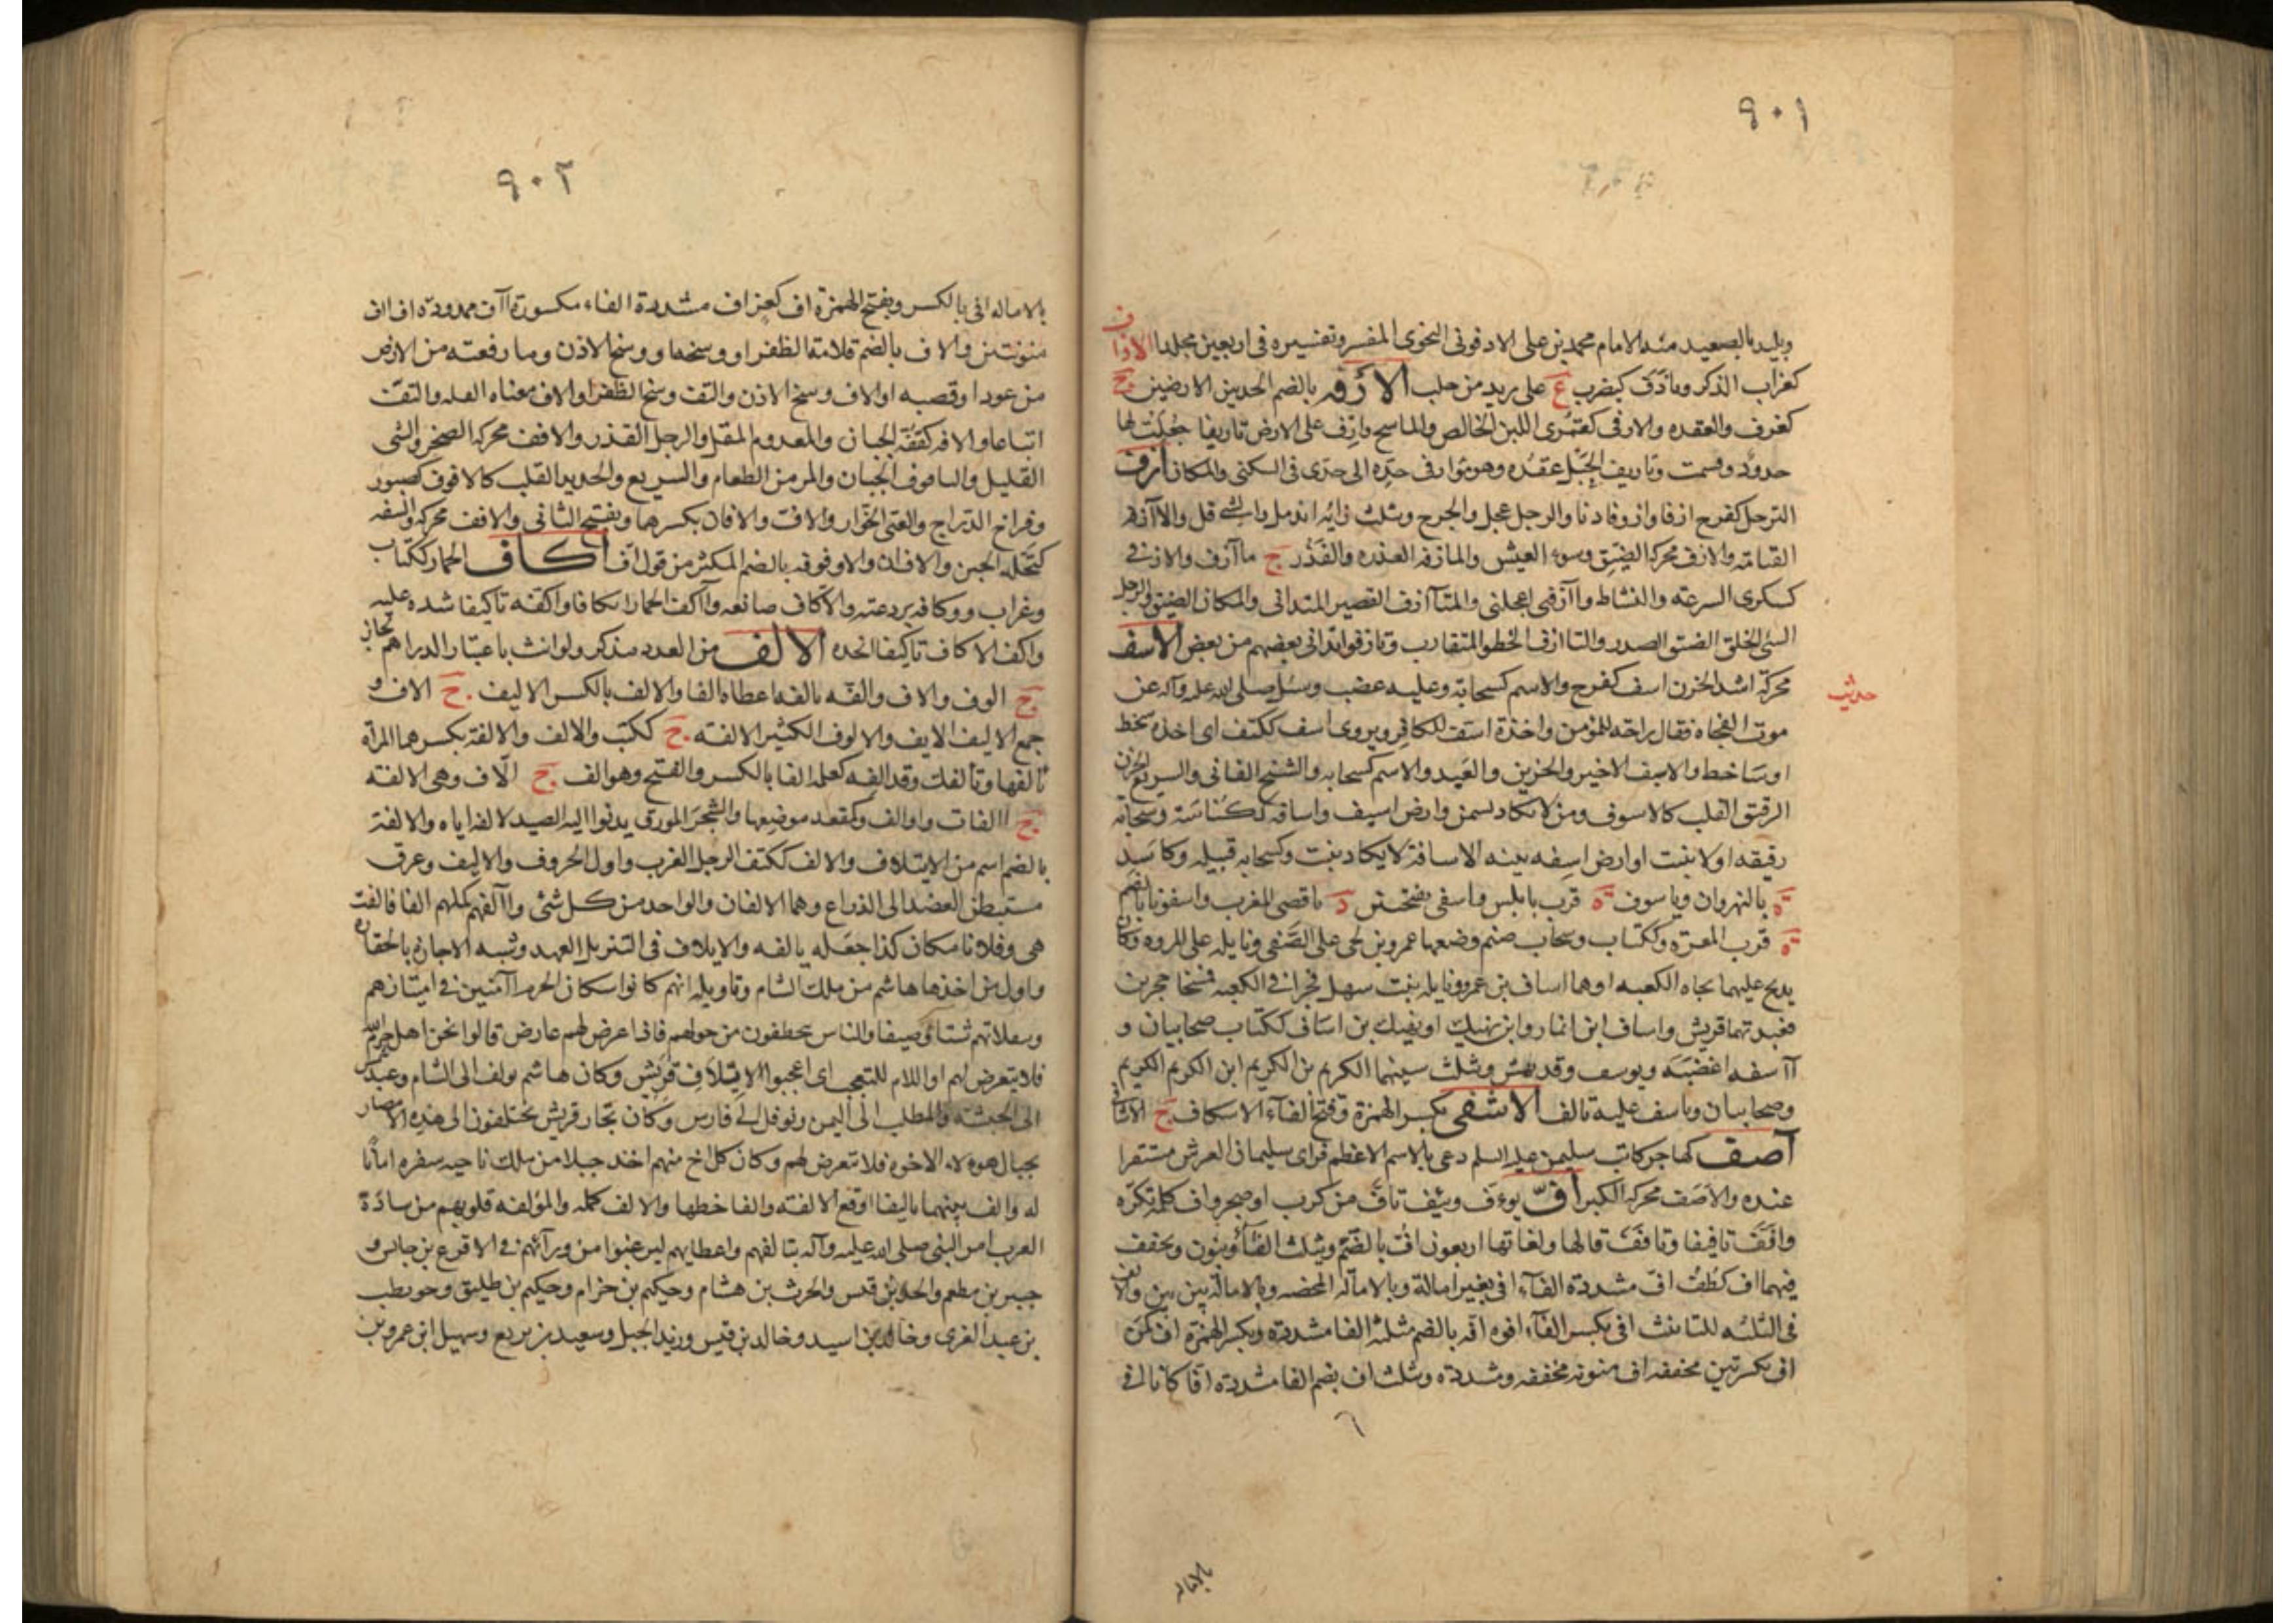 ٩٠١
وبليد بالصعيد منه الامام محمد بن على الادفونى النحوى المفسر وتفسيره فى اربعين مجلدا الاذاف
كغراب الذكر وماذف كيضرب ع على بريد من حلب الارفه بالضم الحد بين الارضين ج
كغرف والعقده والارفى كقمرى اللبن الخالص والماسح وارف على الارض تاريفا جعلت لها
حدود وقسمت وتاريف الحبل عقده وهو مؤارفى حده الى حدى فى السكنى والمكان ازف
الترحل كفرح ازفا وازوفا دنا والرجل عجل والجرح ويثلث زايه اندمل والشئ قل والاآزفه
القيامه والازف محركه الضيق وسوء العيش والمازفه العذره والقذر ج مآازف والازفى
كسكرى السرعه والنشاط وآازفنى اعجلنى والمتآازف القصير المتدانى والمكان الضيق والرجل
السئ الخلق الضيق الصدر والتاازف الخطو المتقارب وتازفوا تدانى بعضهم من بعض الاسف
محركة اشد الحزن اسف كفرح والاسم كسحابة وعليه غضب وسئل صلى الله عليه وآله عن
حديث
موت الفجاه فقال راحه للمؤمن واخذة اسف للكافر ويروى اسف ككتف اى اخذه سخط
او ساخط والاسيف الاخير والحزين والعبيد والاسم كسحابه والشيخ الفانى والسريع الحزن
الرقيق القلب كالاسوف ومن لا يكاد يسمن وارض اسيف واسافه ككناسة وسحابة
رقيقه او لا ينبت او ارض اسفه بينه الاسافة لا يكاد ينبت وكسحابه قبيله وكاسد
ة بالنهروان وياسوف ة قرب نابلس واسفى بفتحتين د باقصى المغرب واسفونا بالضم
ة قرب المعره وككتاب وسحاب صنم وضعها عمرو بن لحى على الصفى ونايله على المروه وكان
يذبح عليهما تجاه الكعبه او هما اساف بن عمرو ونايله بنت سهل فجرا فى الكعبه فمسخا حجرين
فعبدتهما قريش واساف ابن انمار وابن نهيك او نهيك بن اساف ككتاب صحابيان و
آاسفه اغضبه ويوسف وقد يهمز ويثلث سينهما الكريم بن الكريم ابن الكريم الكريم
وصحابيان وتاسف عليه تالف الاشفى بكسر الهمزة وفتح الفآء الاسكاف ج الاشافى
آصف كهاجر كاتب سليمن عليه السلم دعى بالاسم الاعظم فراى سليمان العرش مستقرا
عنده والاصف محركه الكبر اف يوءف ويئف تافف من كرب او ضجر واف كلمة تكره
وافف تافيفا وتافف قالها ولغاتها اربعون اف بالضم ويثلث الفآ وينون ويخفف
فيهما اف كطف اف مشددة الفآء افى بغير امالة وبالاماله المحضه وبالامالة بين بين والالف
فى الثلثه للتانيث افى بكسر الفآء افوه افه بالضم مثلثه الفا مشدده وبكسر الهمزة اف كمن
اف بكسرتين مخففه اف منونه مخففه ومشدده ويثلث اف بضم الفا مشدده افا كانا افى
بالاماله
٩٠٢
بالاماله افى بالكسر وبفتح الهمزة اف كعن اف مشددة الفاء مكسورة آاف ممدوده اف اف
منونتين والاف بالضم قلامة الظفر او وسخها ووسخ الاذن وما رفعته من الارض
من عود او قصبه او الاف وسخ الاذن والتف وسخ الظفر او الاف معناه القله والتف
اتباعا والافه كقفة الجبان والمعدوم المقل والرجل القذر والافف محركه الضجر والشئ
القليل واليافوف الجبان والمر من الطعام والسريع والحديد القلب كالافوف كصبور
وفراخ الدراج والعى الخوار والاف والافان بكسرهما ويفتح الثانى والافف محركه والتفه
كتحله الحين والافان والاوفوفه بالضم المكثر من قول اف اكاف الحمار ككتاب
وغراب ووكافه بردعته والاكاف صانعه وآاكف الحمار ايكافا واكفه تاكيفا شده عليه
واكف الاكاف تاكيفا اتخذه الالف من العدد مذكر ولو انث باعتبار الدراهم لجاز
ج الوف والاف والفه يالفه اعطاه الفا والالف بالكسر الاليف ج الاف و
جمع الاليف الايف والالوف الكثير الالفه ج ككتب والالف والالفة بكسرهما المراة
تالفها وتالفك وقد الفه كعلمه الفا بالكسر والفتح وهو الف ج الاف وهى الالفه
ج االفات واوالف وكمقعد موضعها والشجر المورق يدنوا اليه الصيد لالفه اياه والالفة
بالضم اسم من الايتلاف والالف ككتف الرجل الغرب واول الحروف والاليف وعرق
مستبطن العضد الى الذراع وهما الالفان والواحد من كل شئ وآالفهم كملهم الفا فالفت
هى وفلانا مكان كذا جعله يالفه والايلاف فى التنزيل العهد وشبه الاجازه بالخفاره
واول من اخذها هاشم من ملك الشام وتاويله انهم كانوا سكان الحرم اامنين فى امتيازهم
وتنقلاتهم شتاء وصيفا والناس يتخطفون من حولهم فاذا عرض لهم عارض قالوا نحن اهل حرم الله
فلا يتعرض لهم او اللام للتعجب اى اعجبوا لايلاف قريش وكان هاشم يولف الى الشام وعبد شمس
الى الحبشه والمطلب الى اليمن ونوفل الى فارس وكان تجار قريش يختلفون الى هذه الامصار
بحبال هوءلاء الاخوه فلا تتعرض لهم وكان كل اخ منهم اخذ حبلا من ملك ناحيه سفره امانا
له والف بينهما تاليفا اوقع الالفه والفا خطها والالف كمله والمؤلفه قلوبهم من سادة
العرب امر النبى صلى الله عليه وآله بتالفهم واعطايهم ليرغبوا من ورآئهم فى الاقرع بن حابس و
جبير بن مطعم والجد بن قيس والحرث بن هشام وحكيم بن حزام وحكيم بن طليق وحويطب
بن عبد العزى وخالد بن اسيد وخالد بن قيس وزيد الخيل وسعيد بن يربوع وسهيل ابن عمرو بن